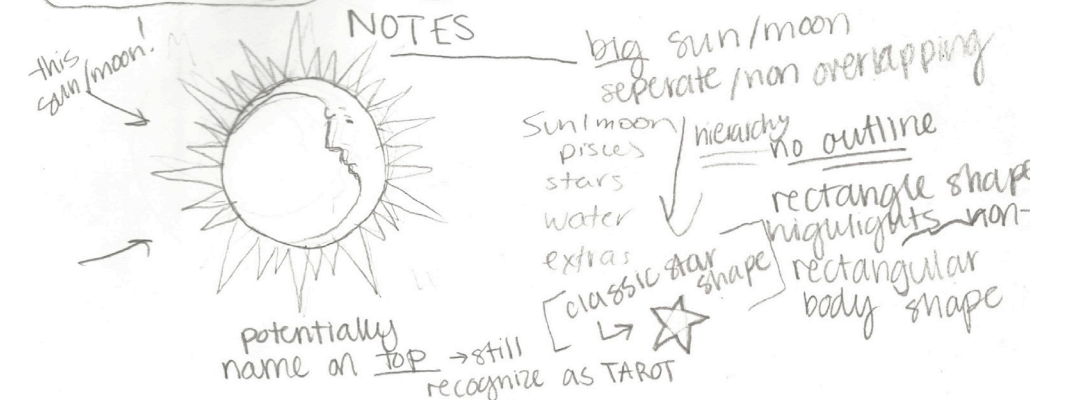 NOTES
this
sun/moon!
big sun/moon
seperate/non overlapping
Sun/moon
pisces
stars
water
extras
hierarchy
no outline
rectangle shape
highlights non-
rectangular
body shape
classic star
shape
potentially
name on top → still
recognize as TAROT